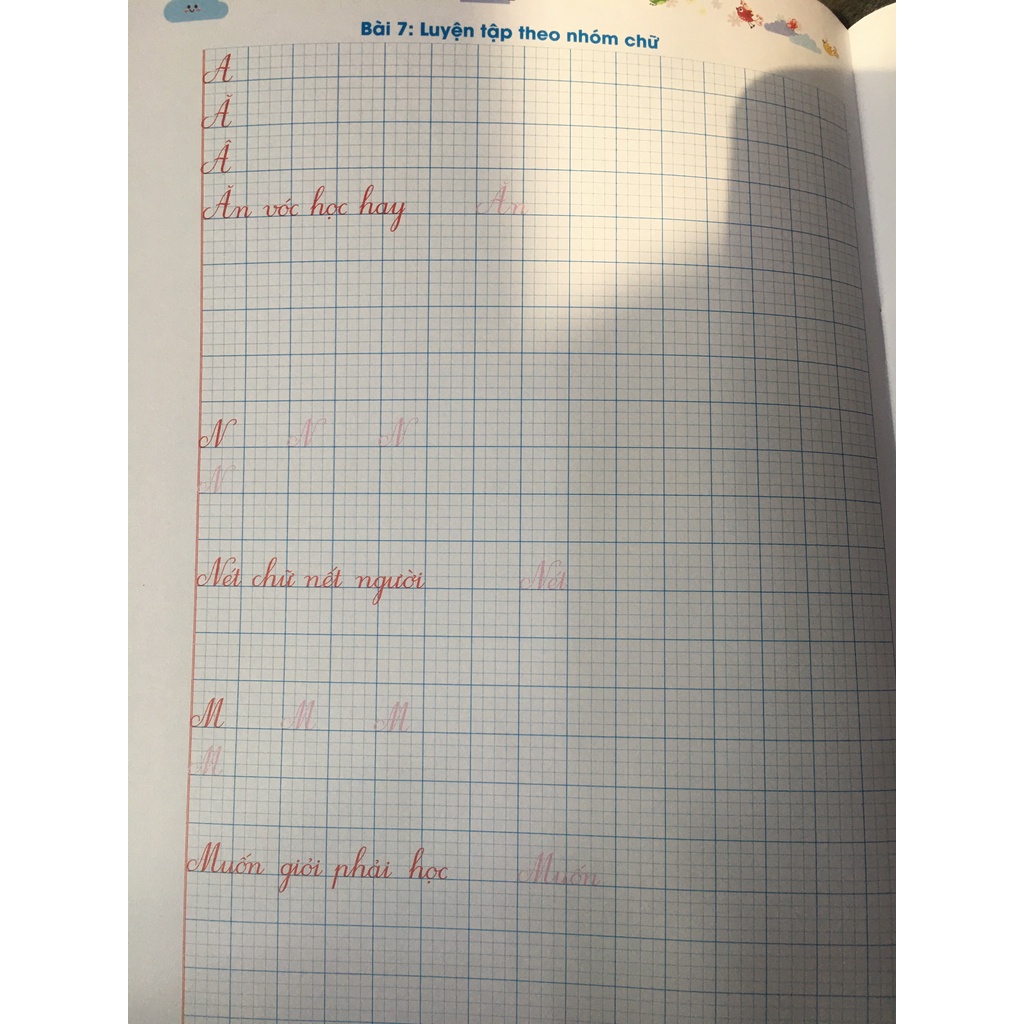 Bài 7: Luyện tập theo nhóm chữ
A
Ă
Â
Ăn vóc học hay Ăn
N N N
N
Nét chữ nết người Nét
M M M
M
Muốn giỏi phải học Muốn